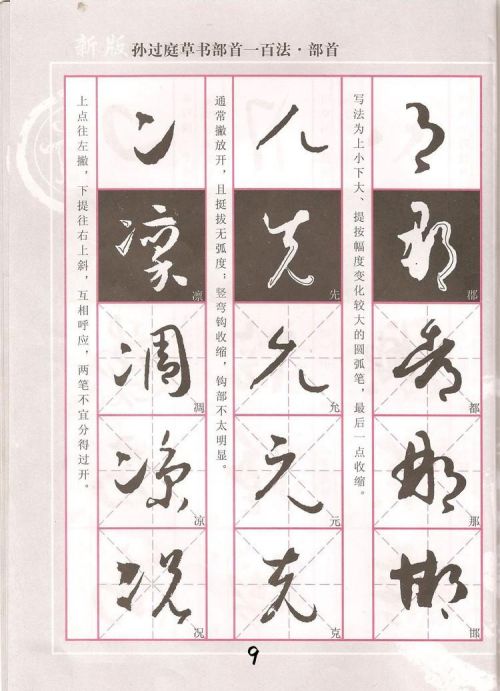 新版 孙过庭草书部首一百法·部首
写法为上小下大、提按幅度变化较大的圆弧笔，最后一点收缩。
阝
郡
都
那
邯
通常撇放开，且挺拔无弧度；竖弯钩收缩，钩部不太明显。
儿
先
允
元
克
上点往左撇，下提往右上斜，互相呼应，两笔不宜分得过开。
冫
凛
凋
凉
况
9